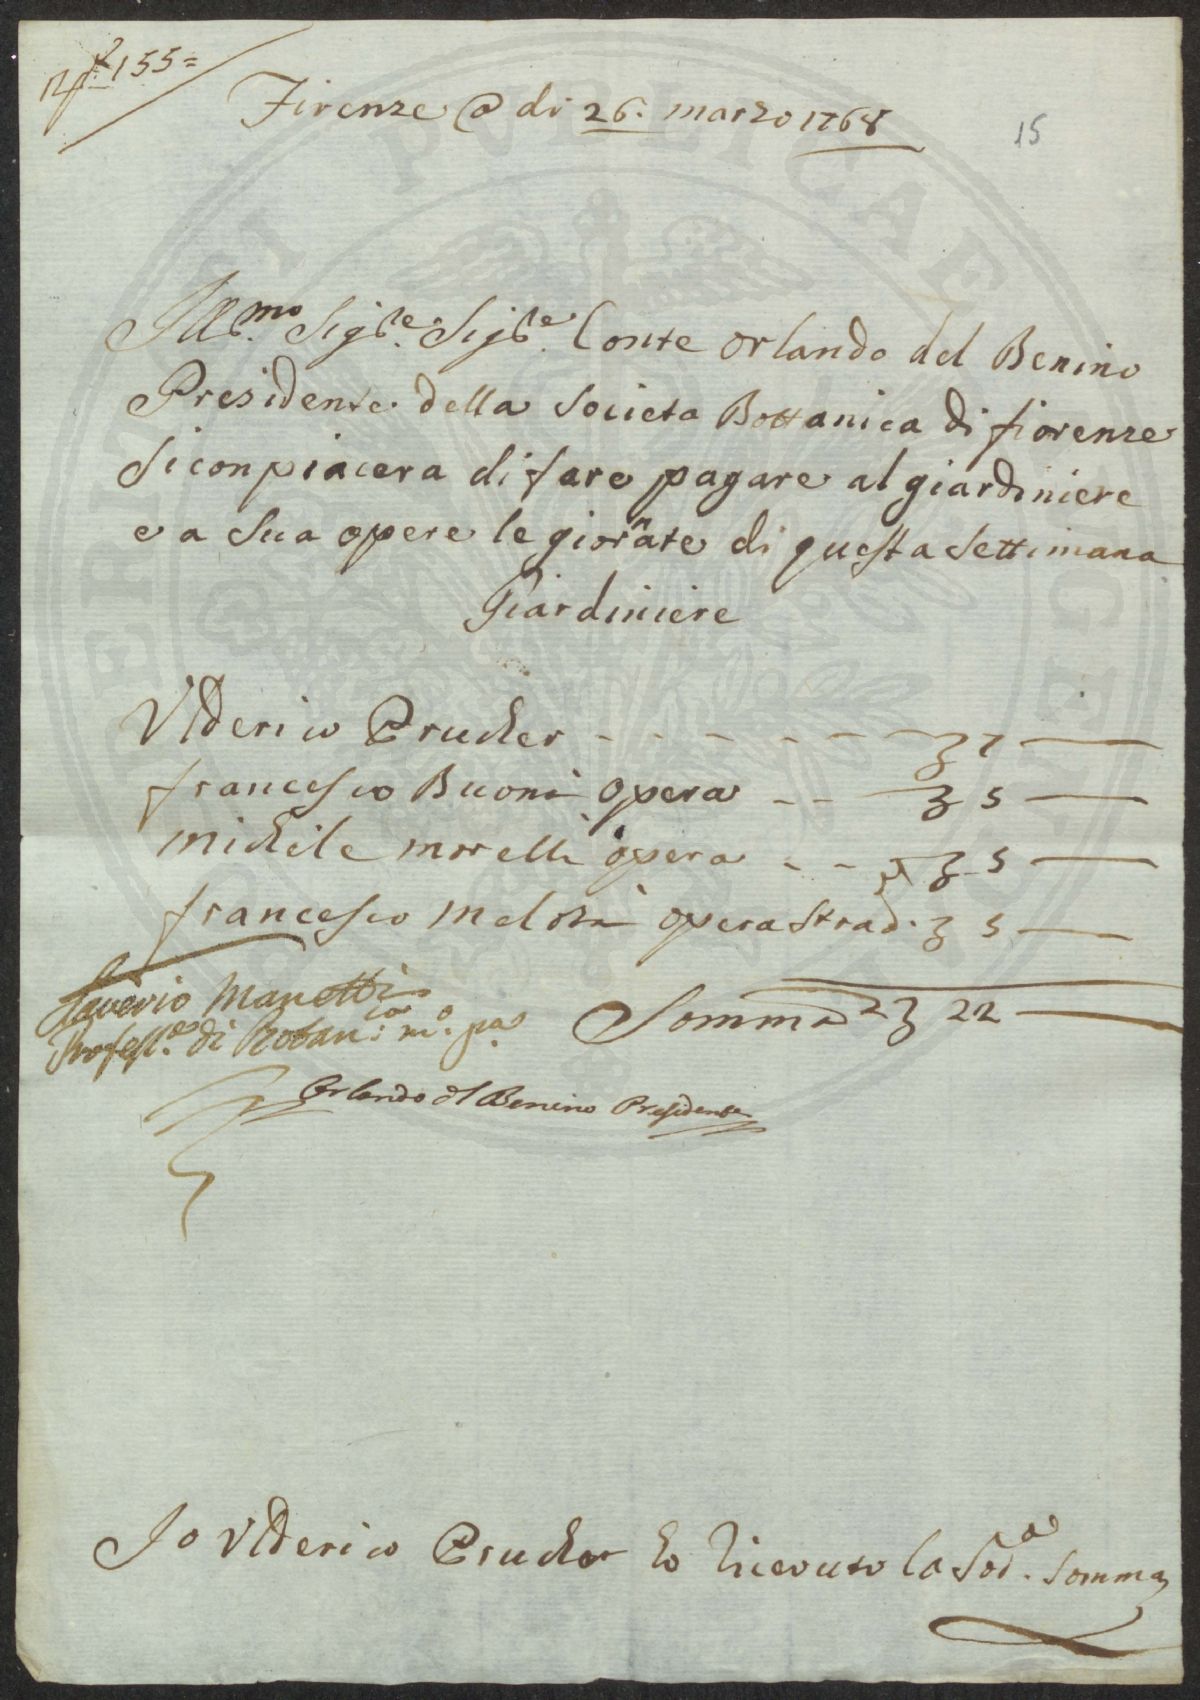 155=
Firenze @ di 26. marzo 1768
15
Ill.mo Sig.re Sig.re Conte Orlando del Benino
Presidente della Societa Bottanica di fiorenze
si conpiacera di fare pagare al giardiniere
e a sua opere le giornate di questa settimana
Giardiniere
Vlderico Prucker - - - - - - 7 —
francesco Buoni opera - - 5 —
Michele morelli opera - - 5 —
francesco Meloni opera strad. 5 —
Saverio Manetti
Profess.e di Botan.ca m.o pa
Somma 22 —
Orlando del Benino Presidente
Io Vlderico Prucker ho riceuuto la sod.a somma